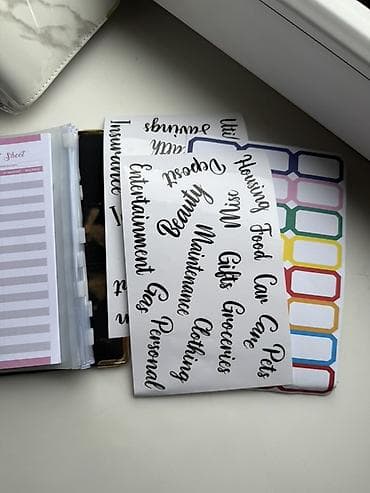 Sheet
Housing Food Car Care Pets
Misc Gifts Groceries
Deposit
Beauty Maintenance Clothing
Entertainment Gas Personal
Util
Savings
alth
Insurance